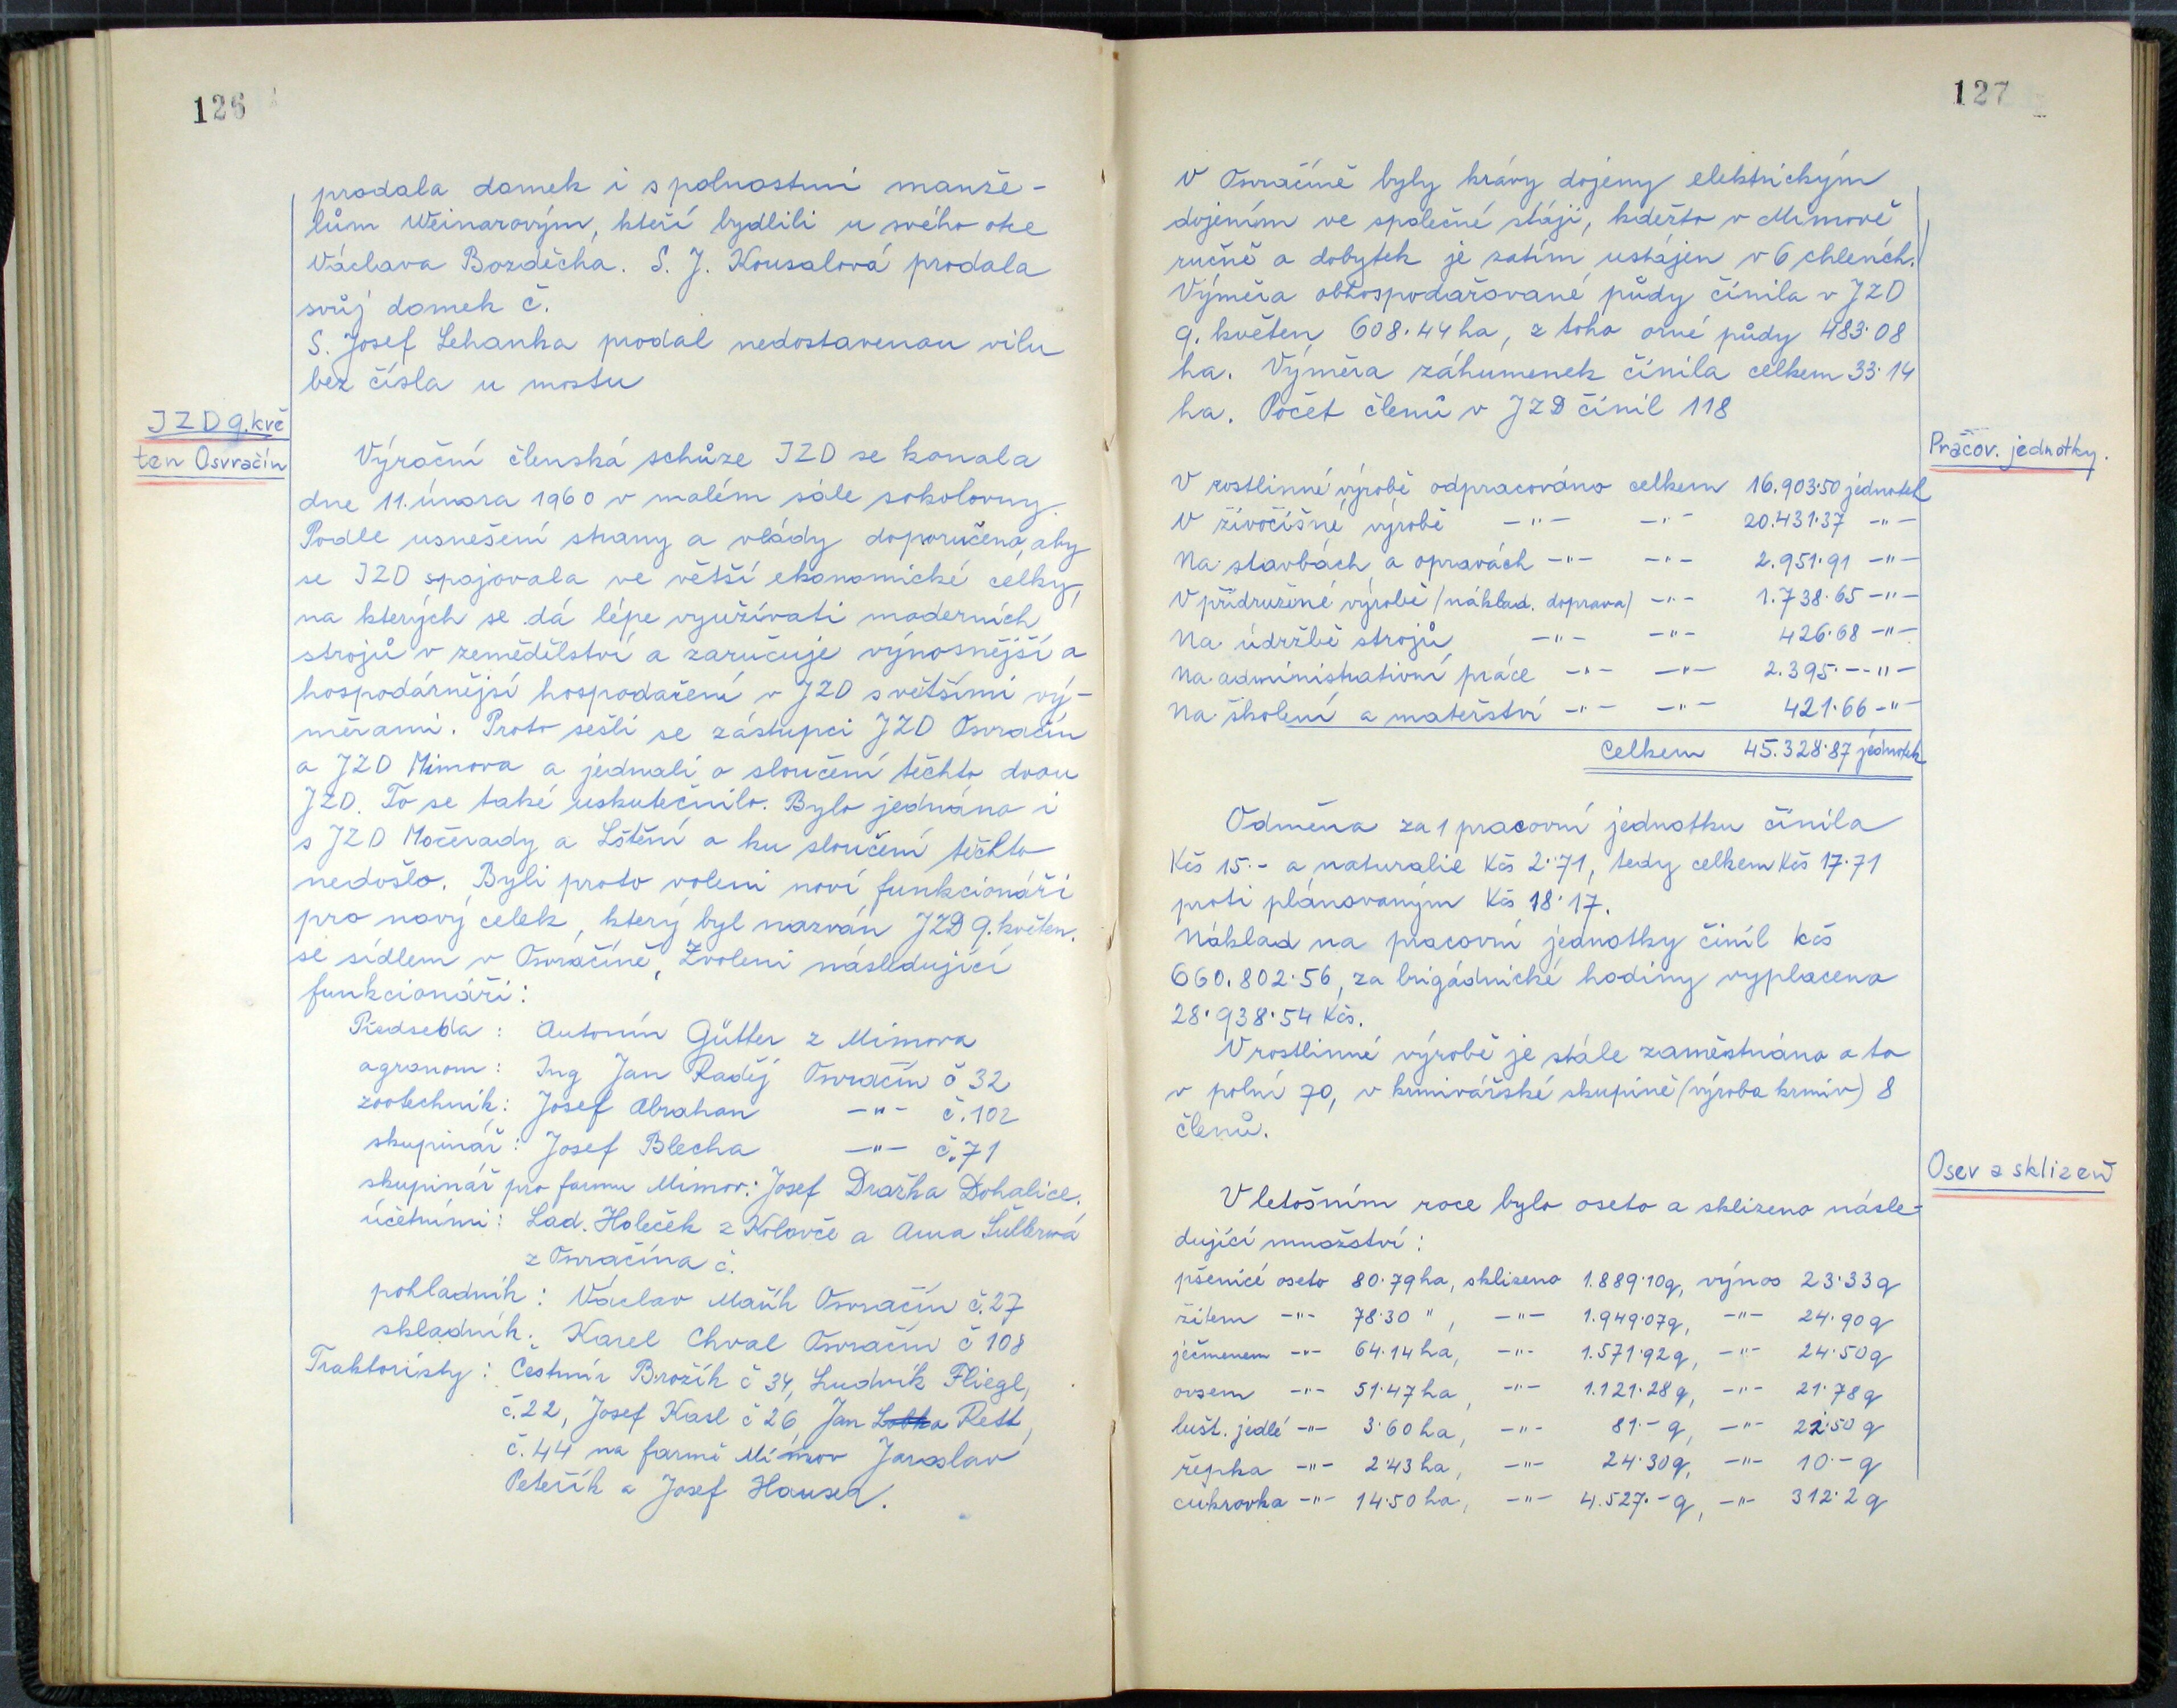 126
prodala domek i s polnostmi manže-
lům Weinarovým, kteří bydlili u svého otce
Václava Bozděcha. S. J. Kousalová prodala
svůj domek č.
S. Josef Lehanka prodal nedostavenou vilu
bez čísla u mostu
JZD 9. kvě
ten Osvračín
Výroční členská schůze JZD se konala
dne 11. února 1960 v malém sále sokolovny.
Podle usnešení strany a vlády doporučeno, aby
se JZD spojovala ve větší ekonomické celky,
na kterých se dá lépe využívati moderních
strojů v zemědělství a zaručuje výnosnější a
hospodárnější hospodaření v JZD s většími vý-
měrami. Proto sešli se zástupci JZD Osvračín
a JZD Mimova a jednali o sloučení těchto dvou
JZD. To se také uskutečnilo. Bylo jednáno i
s JZD Močerady a Lštění a ku sloučení těchto
nedošlo. Byli proto voleni noví funkcionáři
pro nový celek, který byl nazván JZD 9. květen.
se sídlem v Osvračíně, Zvoleni následující
funkcionáři:
Předseda: Antonín Gütter z Mimova
agronom: Ing Jan Raděj Osvračín č 32
zootechnik: Josef Abrahan -"- č. 102
skupinář: Josef Blecha -"- č. 71
skupinář pro farmu Mimov: Josef Dražka Dohalice.
účetními: Lad. Holeček z Kolovče a Anna
z Osvračína č.
pokladník: Václav Mařík Osvračín č. 27
skladník: Karel Chval Osvračín č 108
Traktoristy: Čestmír Brožík č 34, Ludvík Fliegl,
č. 22, Josef Kasl č 26, Jan Rett,
č. 44 na farmě Mímov Jaroslav
Peteřík a Josef Hauser.
127
V Osvračíně byly krávy dojeny elektrickým
dojením ve společné stáji, kdežto v Mimově
ručně a dobytek je zatím ustájen v 6 chlenéch.
Výměra obhospodařované půdy činila v JZD
9. květen 608.44 ha, z toho orné půdy 483.08
ha. Výměra záhumenek činila celkem 33.14
ha. Počet členů v JZD činil 118
Pracov. jednotky.
V rostlinné výrobě odpracováno celkem 16.903.50 jednotek
V živočišné výrobě -"- -"- 20.431.37 -"-
Na stavbách a opravách -"- -"- 2.951.91 -"-
V přidružené výrobě (náklad. doprava) -"- 1.738.65 -"-
Na údržbě strojů -"- -"- 426.68 -"-
Na administrativní práce -"- -"- 2.395.- -"-
Na školení a mateřství -"- -"- 421.66 -"-
Celkem 45.328.87 jednotek
Odměna za 1 pracovní jednotku činila
Kčs 15.- a naturalie Kčs 2.71, tedy celkem Kčs 17.71
proti plánovaným Kčs 18.17.
Náklad na pracovní jednotky činil kčs
660.802.56, za brigádnické hodiny vyplaceno
28.938.54 Kčs.
V rostlinné výrobě je stále zaměstnáno a to
v polní 70, v krmivářské skupině (výroba krmiv) 8
členů.
Osev a sklizeň
V letošním roce bylo oseto a sklizeno násle-
dující množství:
pšenicí oseto 80.79 ha, sklizeno 1.889.10 q, výnos 23.33 q
žitem -"- 78.30 ", -"- 1.949.07 q, -"- 24.90 q
ječmenem -"- 64.14 ha, -"- 1.571.92 q, -"- 24.50 q
ovsem -"- 51.47 ha, -"- 1.121.28 q, -"- 21.78 q
lušt. jedlé -"- 3.60 ha, -"- 81.- q, -"- 22.50 q
řepka -"- 2.43 ha, -"- 24.30 q, -"- 10.- q
cukrovka -"- 14.50 ha, -"- 4.527.- q, -"- 312.2 q